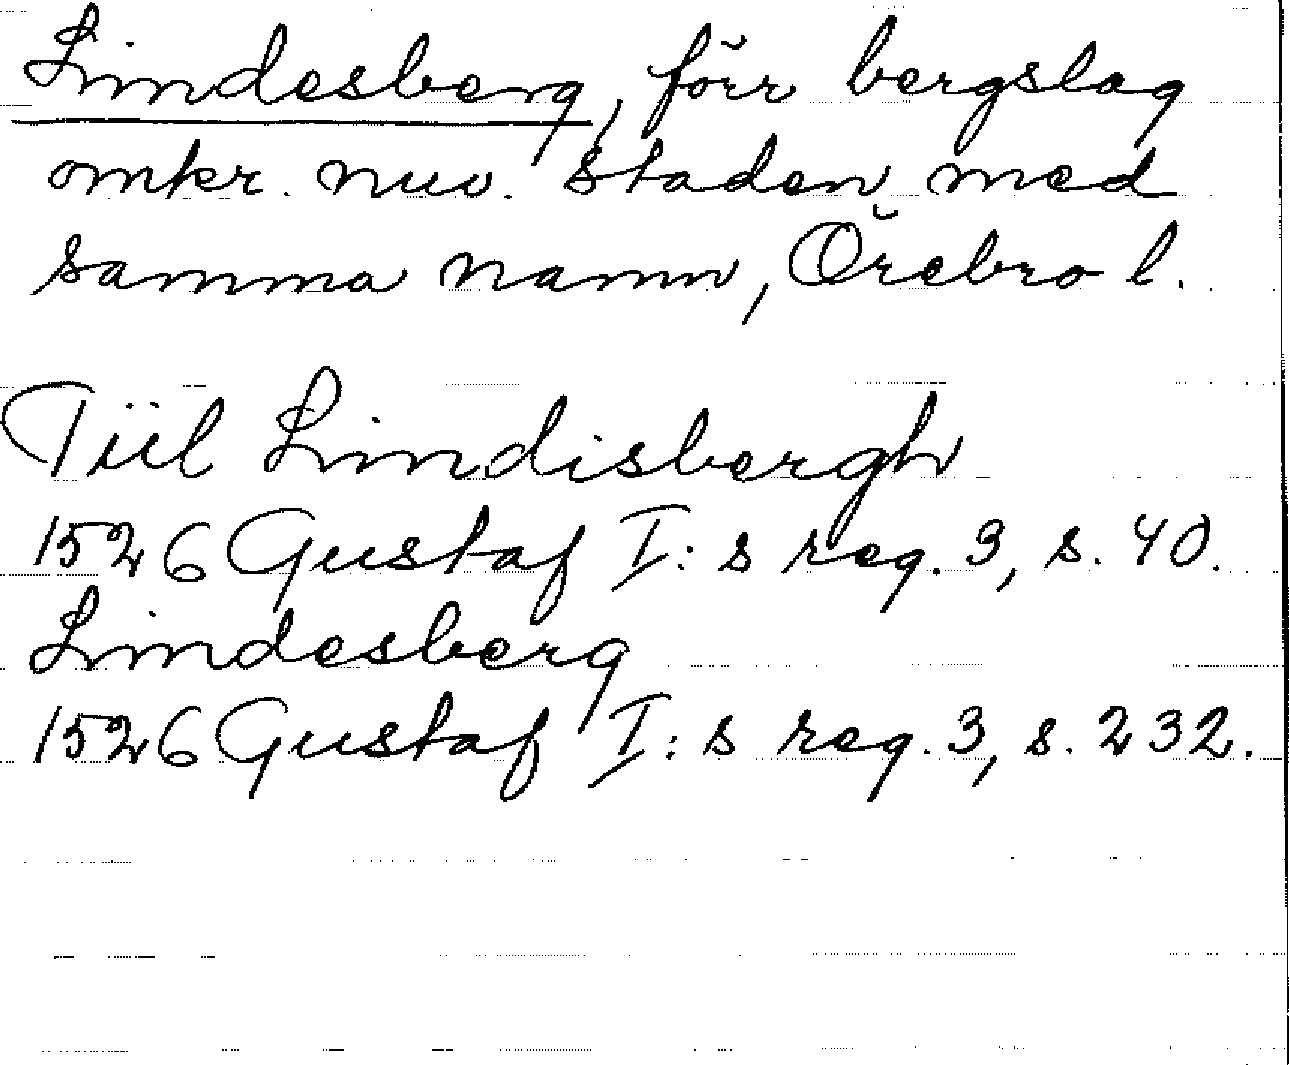 Lindesberg, förr bergslag
omkr. nuv. staden med
samma namn, Örebro l.
Tiil Lindisbergh
1526 Gustaf I: s reg. 3, s. 40.
Lindesberg
1526 Gustaf I: s reg. 3, s. 232.